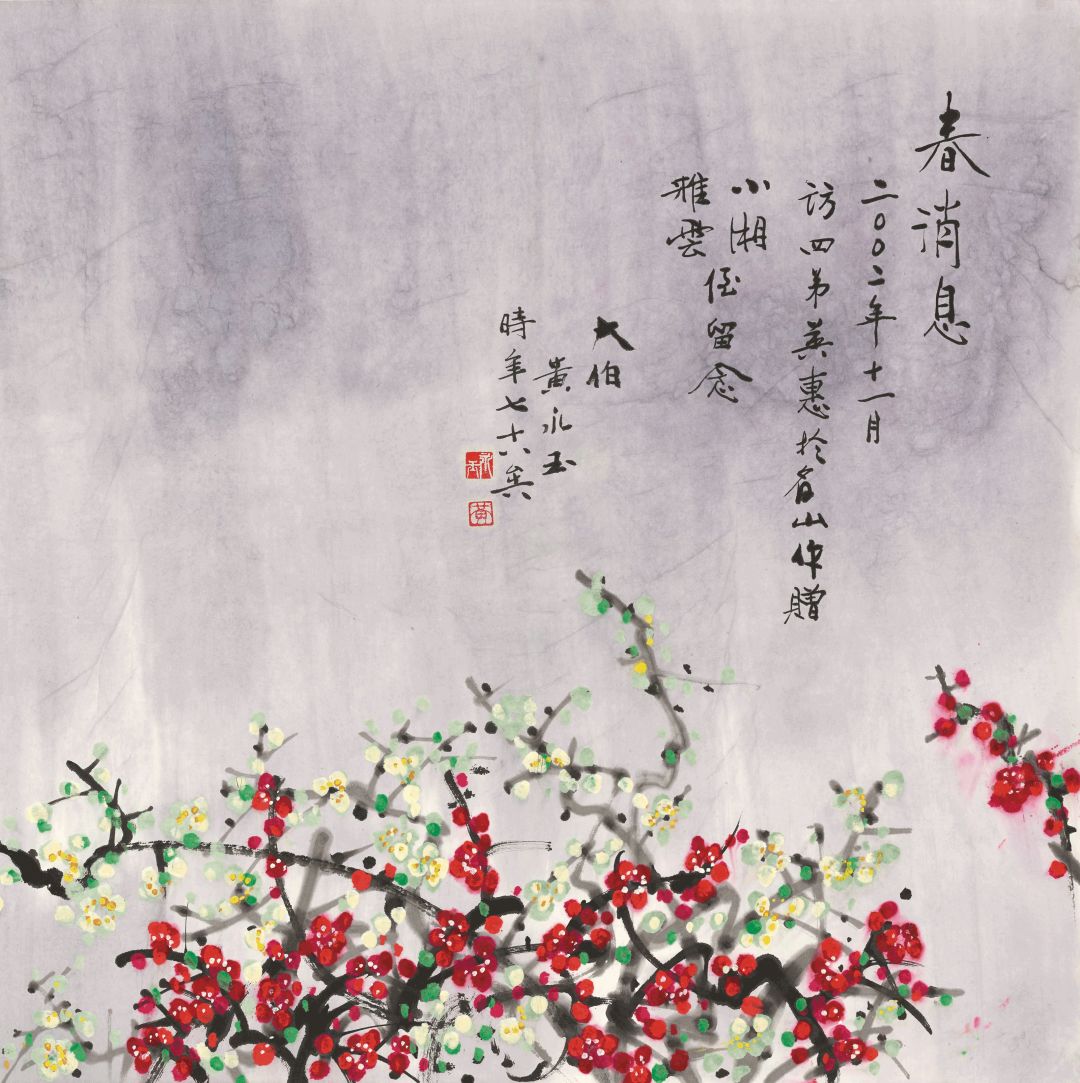 春消息
二〇〇二年十一月
訪四弟英惠於山作贈
小湘
雅雲
侄留念
大伯
黃永玉
時年七十八矣
永玉
黃